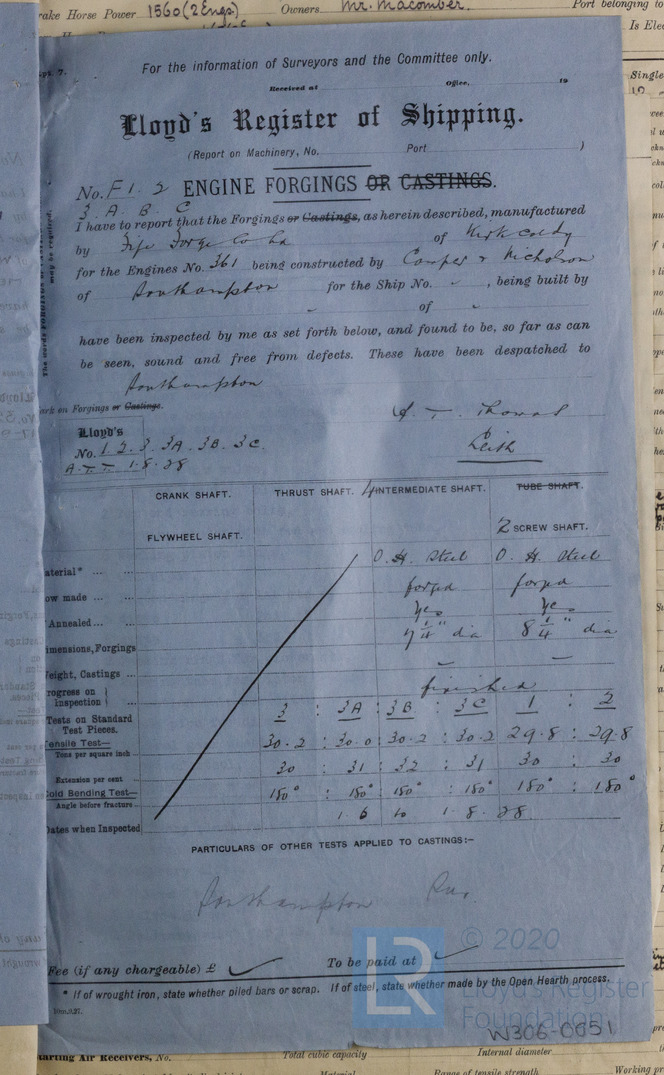 rake Horse Power 1560 (2 Engs) Owners Mr. Macomber. Port belonging to
Is Elec
pt 7.
For the information of Surveyors and the Committee only.
Received at Office, 19
Lloyd's Register of Shipping.
(Report on Machinery, No. Port )
No. F1. 2 ENGINE FORGINGS OR CASTINGS.
3. A B C
I have to report that the Forgings or Castings, as herein described, manufactured
by Fife Forge Co Ld of Kirkcaldy
for the Engines No. 361 being constructed by Camper & Nicholson
of Southampton for the Ship No. , being built by
of
have been inspected by me as set forth below, and found to be, so far as can
be seen, sound and free from defects. These have been despatched to
Southampton
ark on Forgings or Castings.
A. T. Thomas
Leith
Lloyd's
No. 1 2. 3. 3A. 3B. 3C.
A.T.T. 1.8.28
CRANK SHAFT. THRUST SHAFT. 4 INTERMEDIATE SHAFT. TUBE SHAFT.
FLYWHEEL SHAFT. 2 SCREW SHAFT.
aterial* ... ... O. H. Steel O. H. Steel
ow made ... ... forged forged
Annealed ... ... Yes Yes
imensions, Forgings 7 1/4" dia 8 1/4" dia
eight, Castings ...
rogress on Inspection finished
Tests on Standard Test Pieces. 3 : 3A : 3B : 3C : 1 : 2
Tensile Test— Tons per square inch 30.2 : 30.0 : 30.2 : 30.2 29.8 : 29.8
Extension per cent 30 : 31 : 32 : 31 30 : 30
old Bending Test— Angle before fracture 180° : 180° : 180° : 180° 180° : 180°
Dates when Inspected 1.6 to 1.8.28
PARTICULARS OF OTHER TESTS APPLIED TO CASTINGS:-
Southampton
Fee (if any chargeable) £ To be paid at
* If of wrought iron, state whether piled bars or scrap. If of steel, state whether made by the Open Hearth process.
© 2020
LR
Lloyd's Register
Foundation
W306-0051
tarting Air Receivers, No. Total cubic capacity Internal diameter
Material Range of tensile strength Working pr